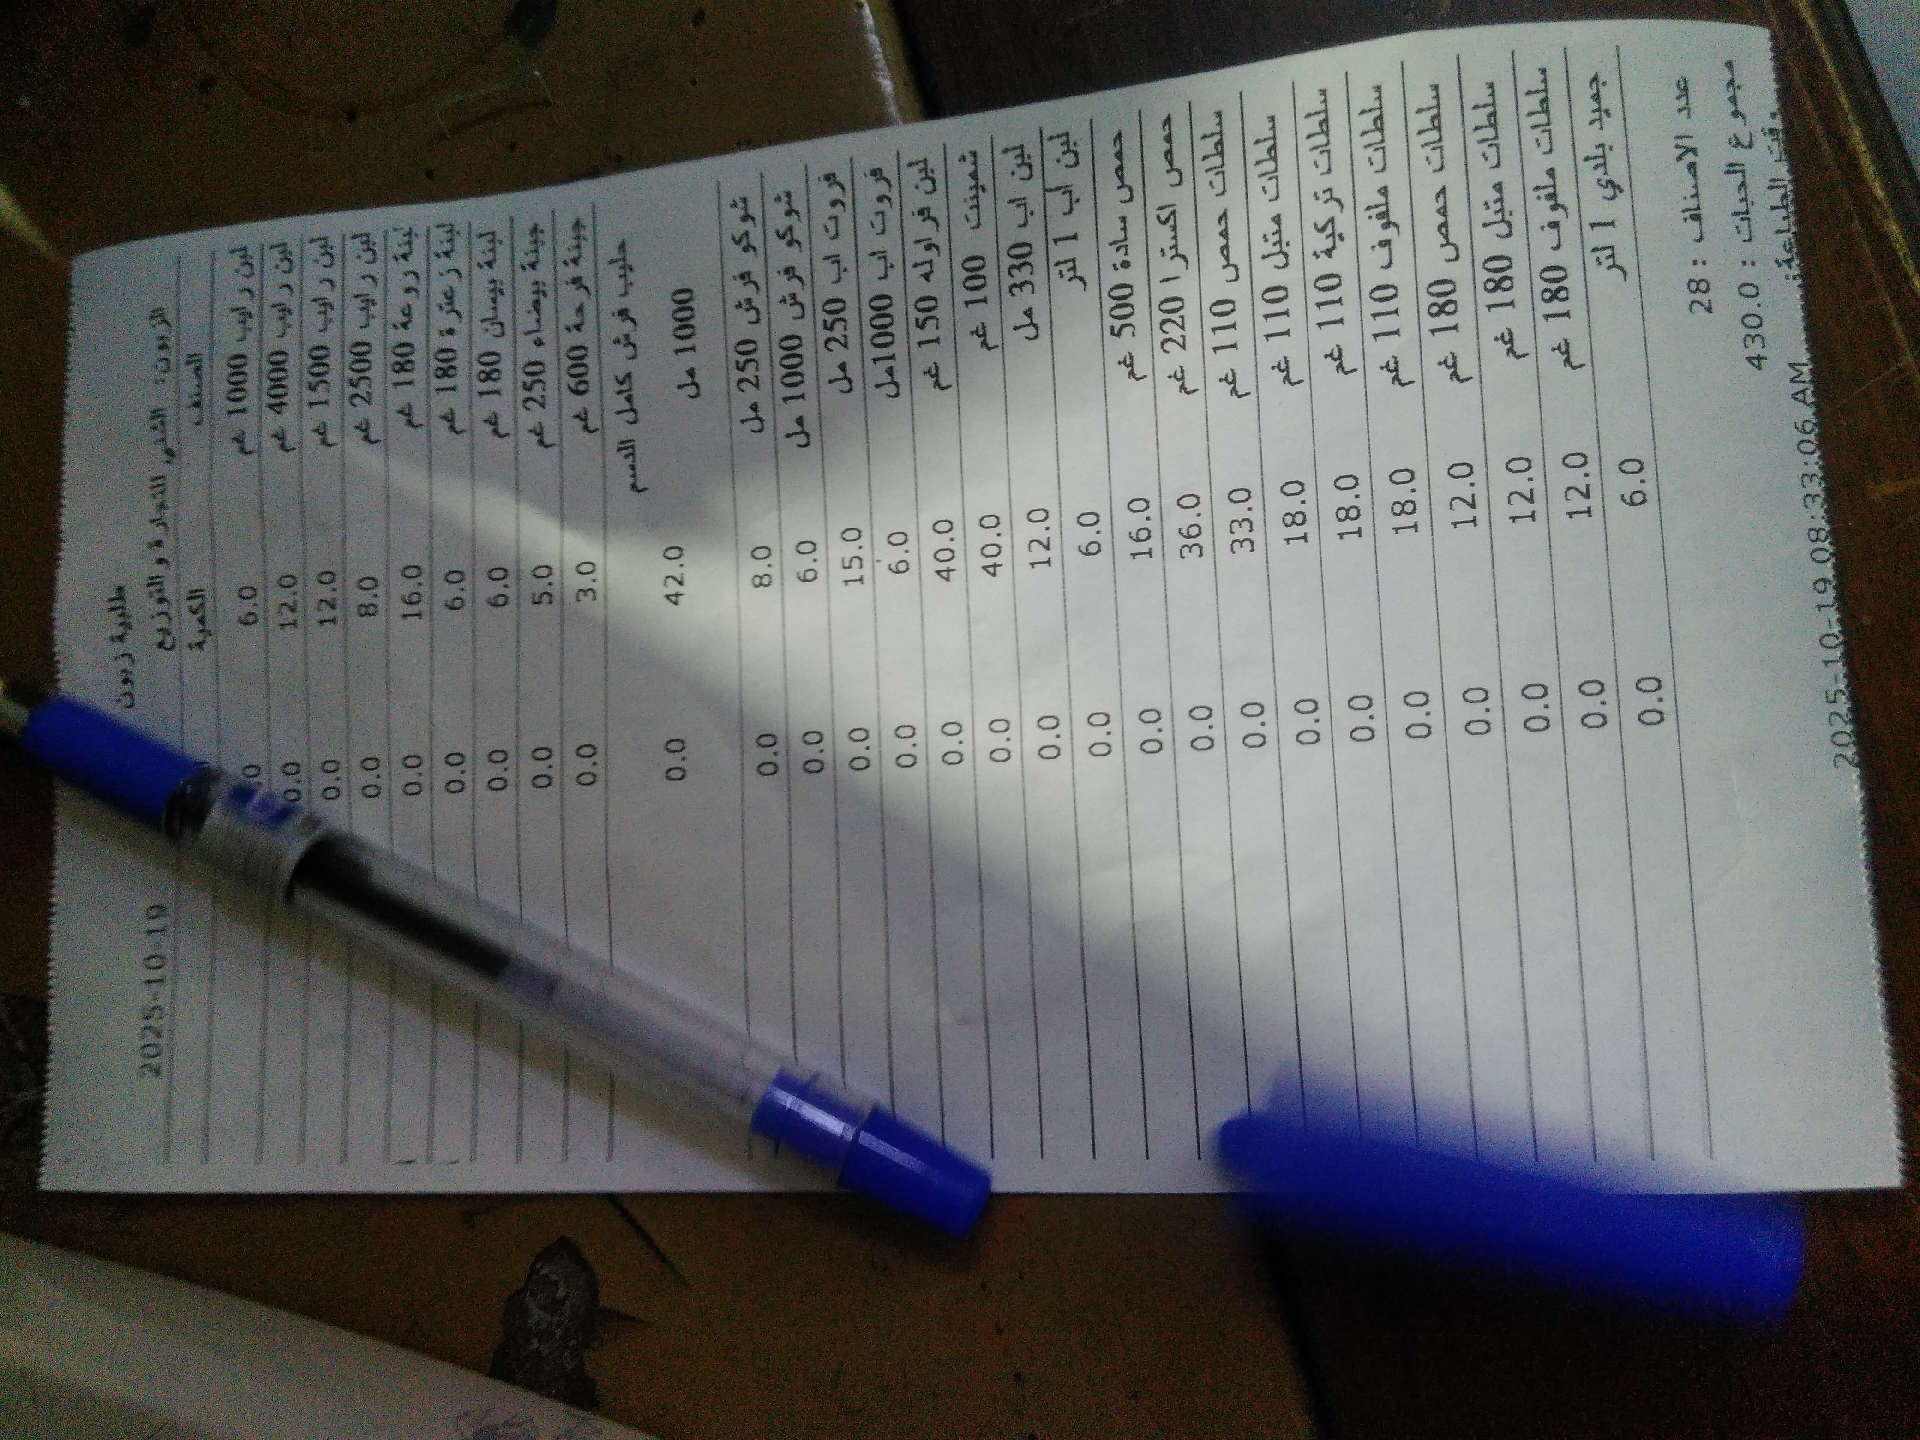 طلبية زبون
الزبون: الشني للتجارة و التوزيع 2025-10-19
الصنف الكمية
لبن رايب 1000 غم 6.0
لبن رايب 4000 غم 12.0 0.0
لبن رايب 1500 غم 12.0 0.0
لبن رايب 2500 غم 8.0 0.0
لبنة روعة 180 غم 16.0 0.0
لبنة زعترة 180 غم 6.0 0.0
لبنة بيسان 180 غم 6.0 0.0
جبنة بيضاء 250 غم 5.0 0.0
جبنة فرحة 600 غم 3.0 0.0
حليب فرش كامل الدسم
1000 مل 42.0 0.0
شوكو فرش 250 مل 8.0 0.0
شوكو فرش 1000 مل 6.0 0.0
فروت اب 250 مل 15.0 0.0
فروت اب 1000مل 6.0 0.0
لبن فراوله 150 غم 40.0 0.0
شمينت 100 غم 40.0 0.0
لبن اب 330 مل 12.0 0.0
لبن اب 1 لتر 6.0 0.0
حمص سادة 500 غم 16.0 0.0
حمص اكسترا 220 غم 36.0 0.0
سلطات حمص 110 غم 33.0 0.0
سلطات متبل 110 غم 18.0 0.0
سلطات تركية 110 غم 18.0 0.0
سلطات ملفوف 110 غم 18.0 0.0
سلطات حمص 180 غم 12.0 0.0
سلطات متبل 180 غم 12.0 0.0
سلطات ملفوف 180 غم 12.0 0.0
جميد بلدي 1 لتر 6.0 0.0
عدد الاصناف : 28
مجموع الحبات : 430.0
وقت الطباعة: 2025-10-19 08:33:06 AM